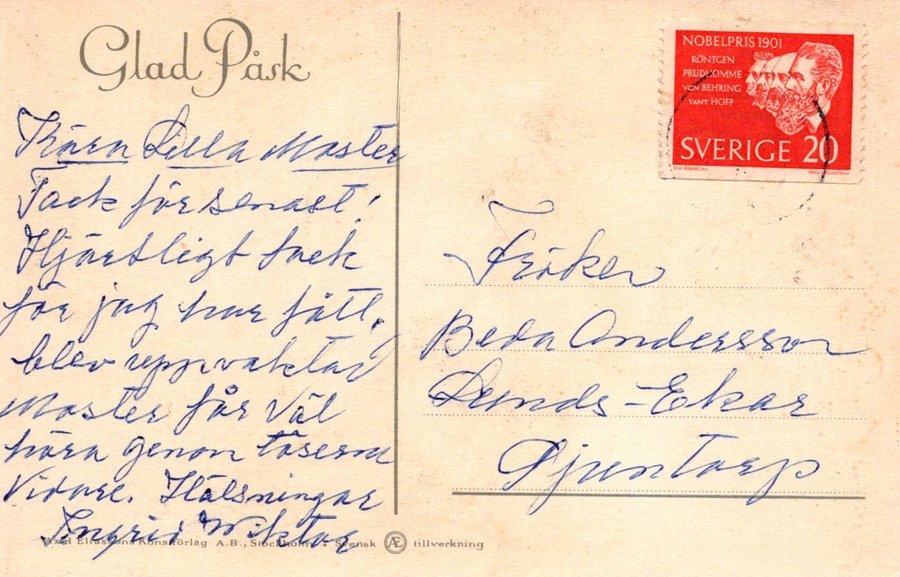 Glad Påsk
Kära Lilla Moster
Tack för senast!
Hjärtligt tack
för jag har fått,
blev uppvaktad
Moster får väl
höra genom töserna
vidare. Hälsningar
Ingrid Wiktor
Axel Eliassons Konstförlag A.B., Stockholm Svensk Æ tillverkning
NOBELPRIS 1901
RÖNTGEN
PRUDHOMME
VON BEHRING
VAN'T HOFF
SVERIGE 20
Fröken
Beda Andersson
Lunds-Ekar
Djuntorp